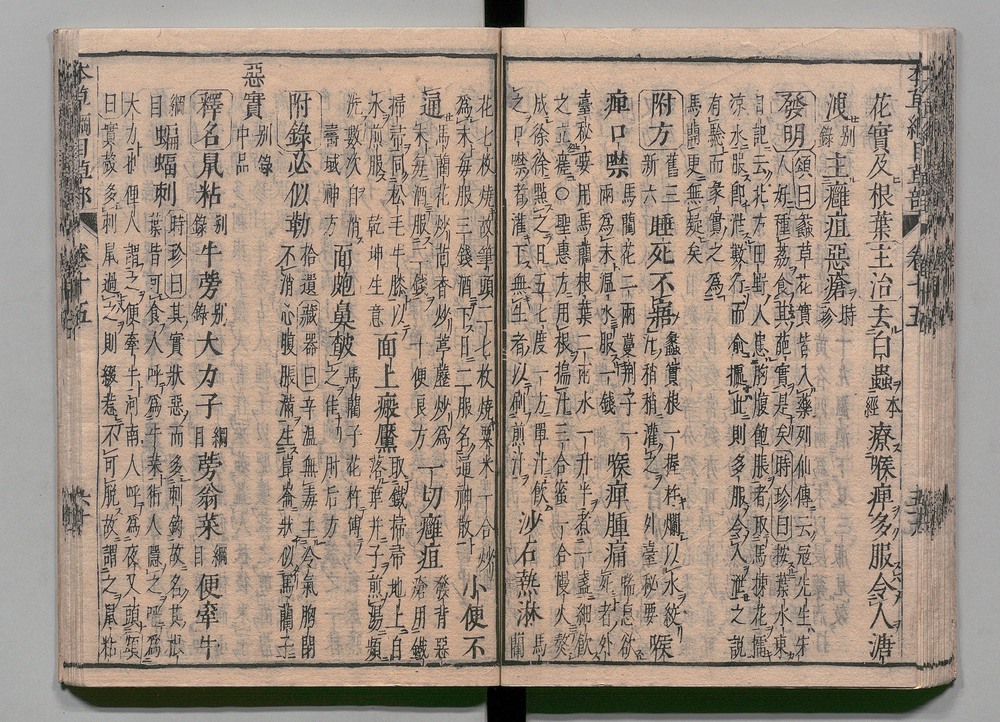 花實及根葉主治去白蟲本經療喉痺多服令人溏
洩别錄主癰疽惡瘡時珍
發明頌曰蠡草花實皆入藥列仙傳云寇先生宋
人好種荔食其葩實是矣時珍曰按葉水東
日記云北方田野人患胸腹飽脹者取馬楝花擂
涼水服即泄數行而愈據此則多服令人泄之說
有驗而蠡實之爲
馬藺更無疑矣
附方舊三新六睡死不寤蠡實根一握杵爛以水絞汁稍稍灌之外臺秘要喉
痺口噤馬藺花二兩蔓荆子一兩爲末温水服一錢喉痺腫痛喘息欲死者外
臺秘要用馬藺根葉二兩水一升半煮一盞細飲
之立瘥○聖惠方用根搗汁三合蜜一合慢火熬
成徐徐點之日五七度一方單汁飲
之口噤者灌下無生者以刷煎汁沙石熱淋馬藺
花七枚燒故筆頭二七枚燒粟米一合炒
爲末每服三錢酒下日二服名通神散小便不
通馬藺花炒茴香炒葶藶炒爲末每酒服二錢十便良方一切癰疽發背惡瘡用鐵
掃帚同松毛牛膝以水煎服乾坤生意面上瘢黶取鐵掃帚地上自落葉并子煎湯頻
洗數次自消壽域神方面皰鼻皶馬藺子花杵傅之佳肘后方
附錄必似勒拾遺藏器曰辛温無毒主冷氣胸閉不消心腹脹滿生崑崙狀似馬藺子
惡實别錄中品
釋名鼠粘别錄牛蒡别錄大力子綱目蒡翁菜綱目便牽牛
綱目蝙蝠刺時珍曰其實狀惡而多刺鉤故名其根葉皆可食人呼爲牛菜術人隱之呼爲
大力也俚人謂之便牽牛河南人呼爲夜叉頭頌
曰實殻多刺鼠過之則綴惹不可脱故謂之鼠粘